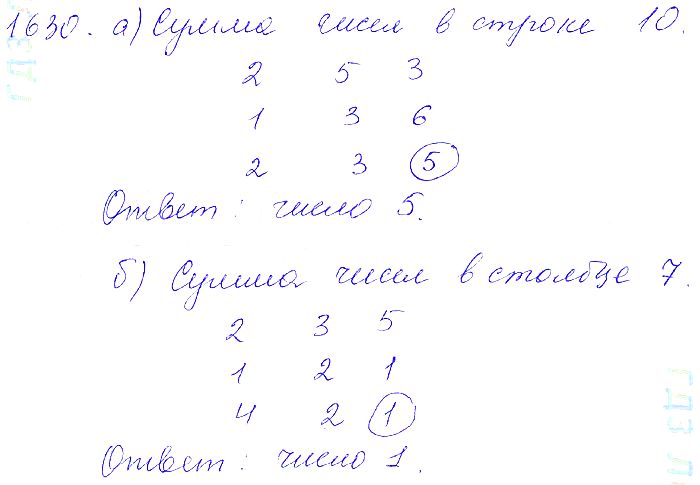 1630. а) Сумма чисел в строке 10.
2 5 3
1 3 6
2 3 5
Ответ: число 5.
б) Сумма чисел в столбце 7.
2 3 5
1 2 1
4 2 1
Ответ: число 1.